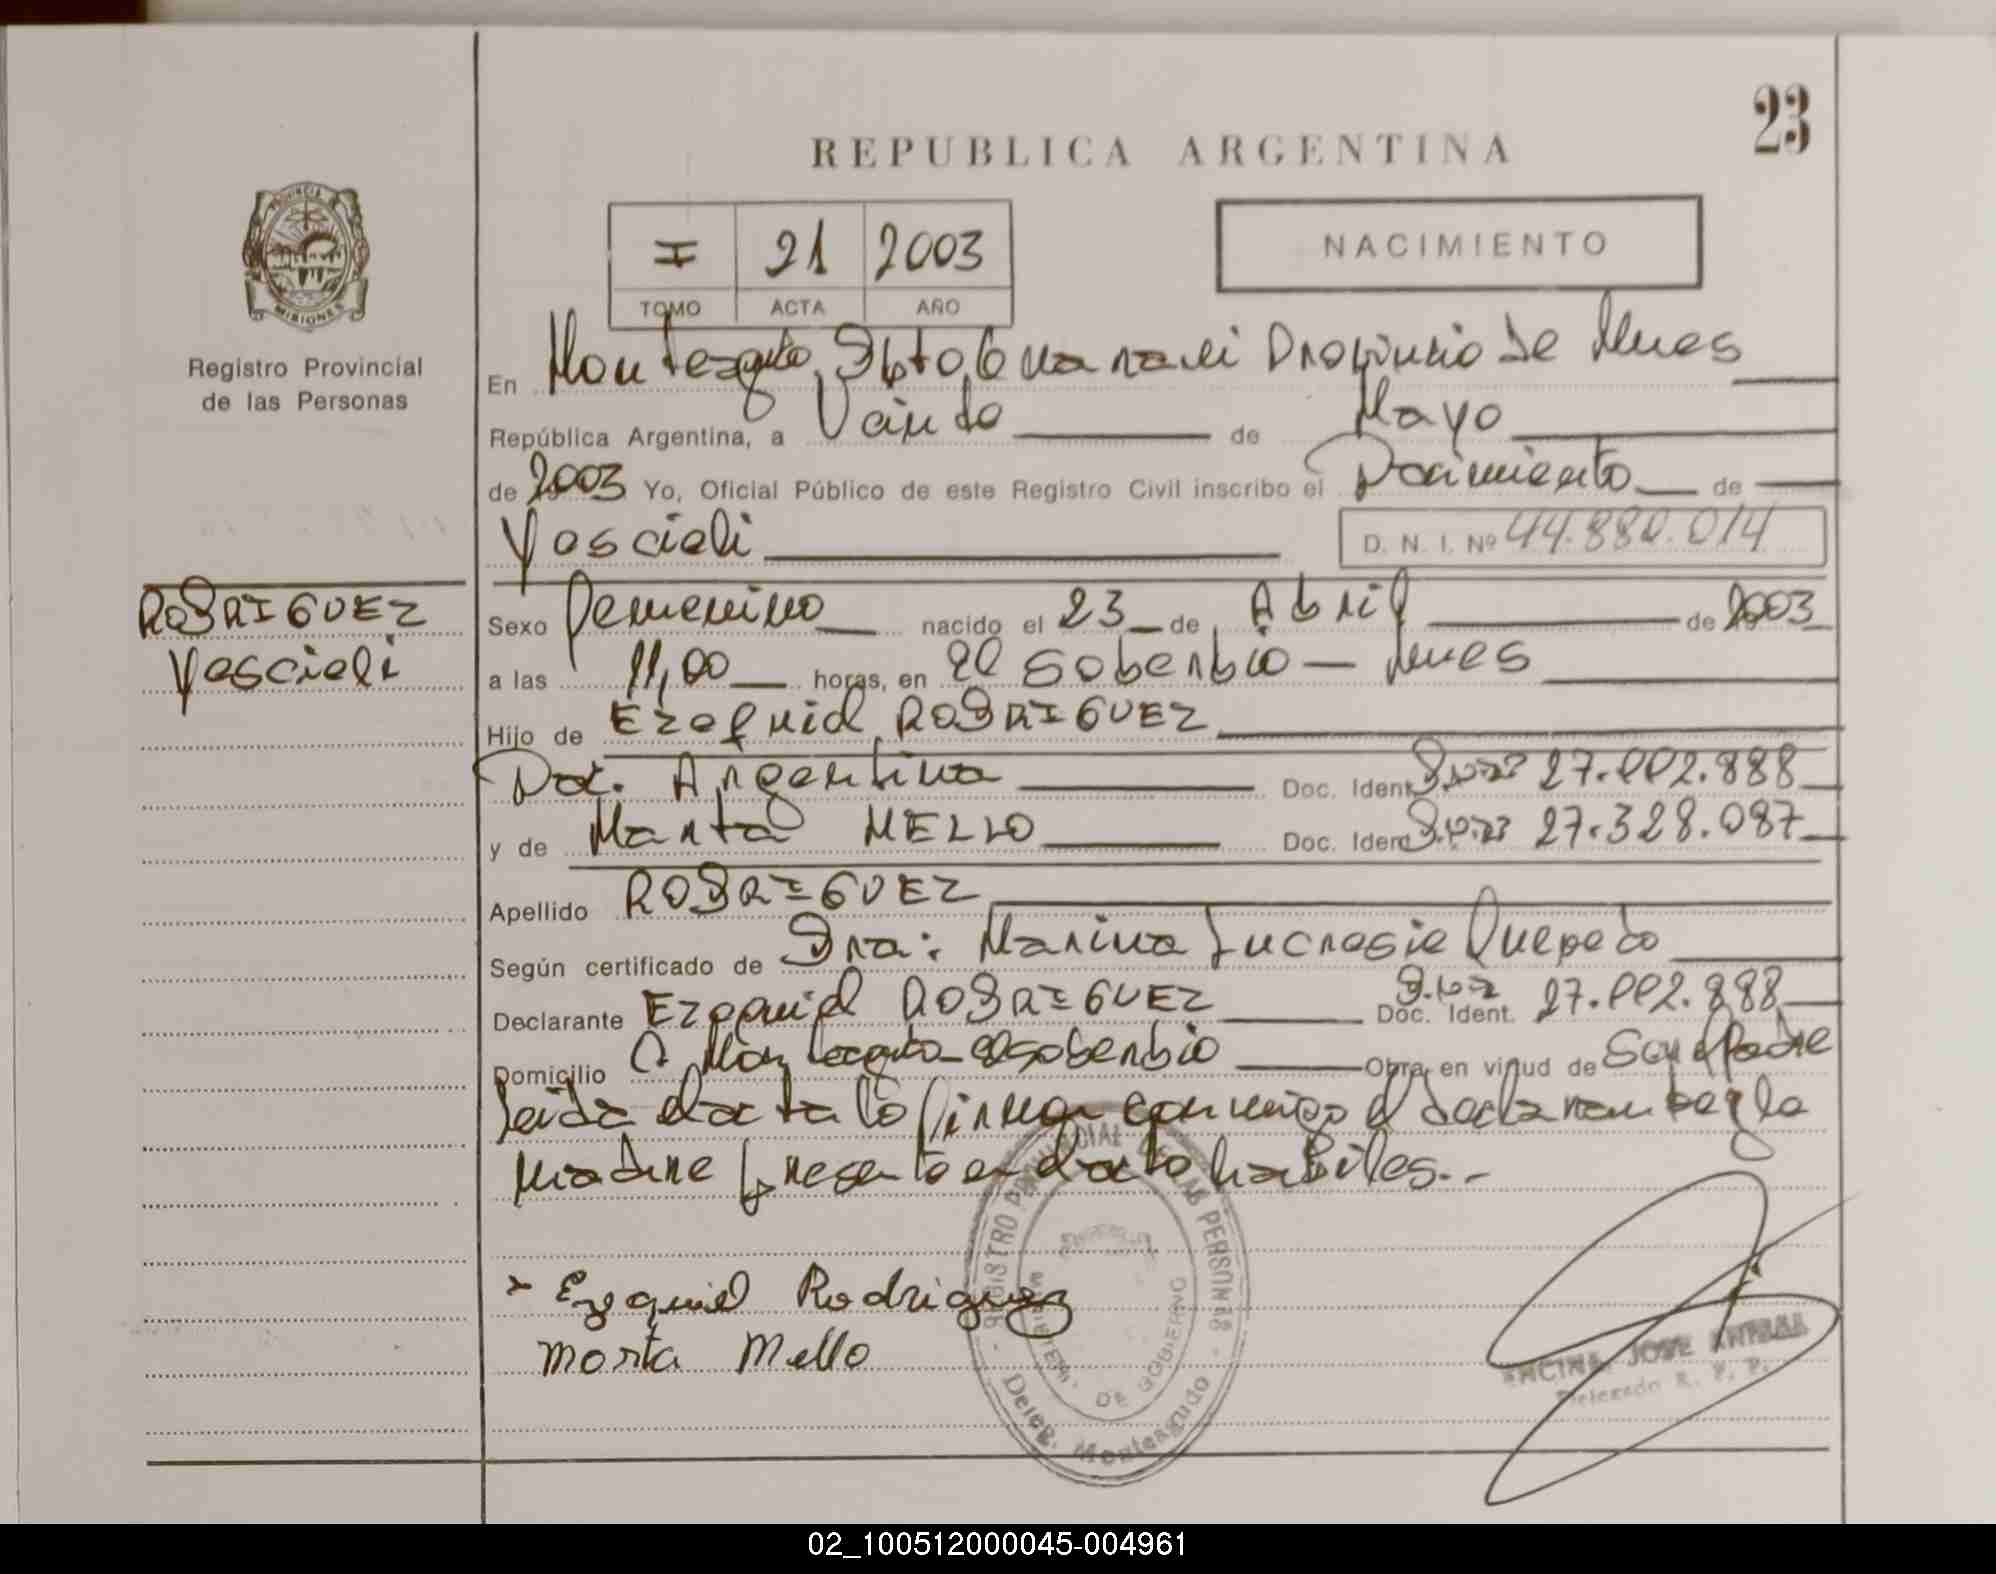 23
REPUBLICA ARGENTINA
I 21 2003
TOMO ACTA AÑO
NACIMIENTO
PROVINCIA
MISIONES
Registro Provincial
de las Personas
En Monteagudo, Dpto Guarani Provincia de Mnes
República Argentina, a Veinte de Mayo
de 2003 Yo, Oficial Público de este Registro Civil inscribo el Nacimiento de
Yoscieli D. N. I. Nº 44.880.014
RODRIGUEZ
Yoscieli
Sexo Femenino nacido el 23 de Abril de 2003
a las 11,00 horas, en El Soberbio - Mnes
Hijo de Ezequiel RODRIGUEZ
Nac. Argentina Doc. Ident. 27.002.888
y de Marta MELLO Doc. Ident. 27.328.087
Apellido RODRIGUEZ
Según certificado de Dra: Marina Lucresia Quevedo
Declarante Ezequiel RODRIGUEZ Doc. Ident. 27.002.888
Domicilio C. Monteagudo - El Soberbio Obra en virtud de Ser el Padre
Leida el acta lo firman conmigo el declarante y la
madre presente en el acto habiles.-
Ezequiel Rodriguez
Marta Mello
REGISTRO PROVINCIAL DE LAS PERSONAS
MINISTERIO DE GOBIERNO
Deleg. Monteagudo
ENCINA JOSE
Delegado R. P. P.
02_100512000045-004961